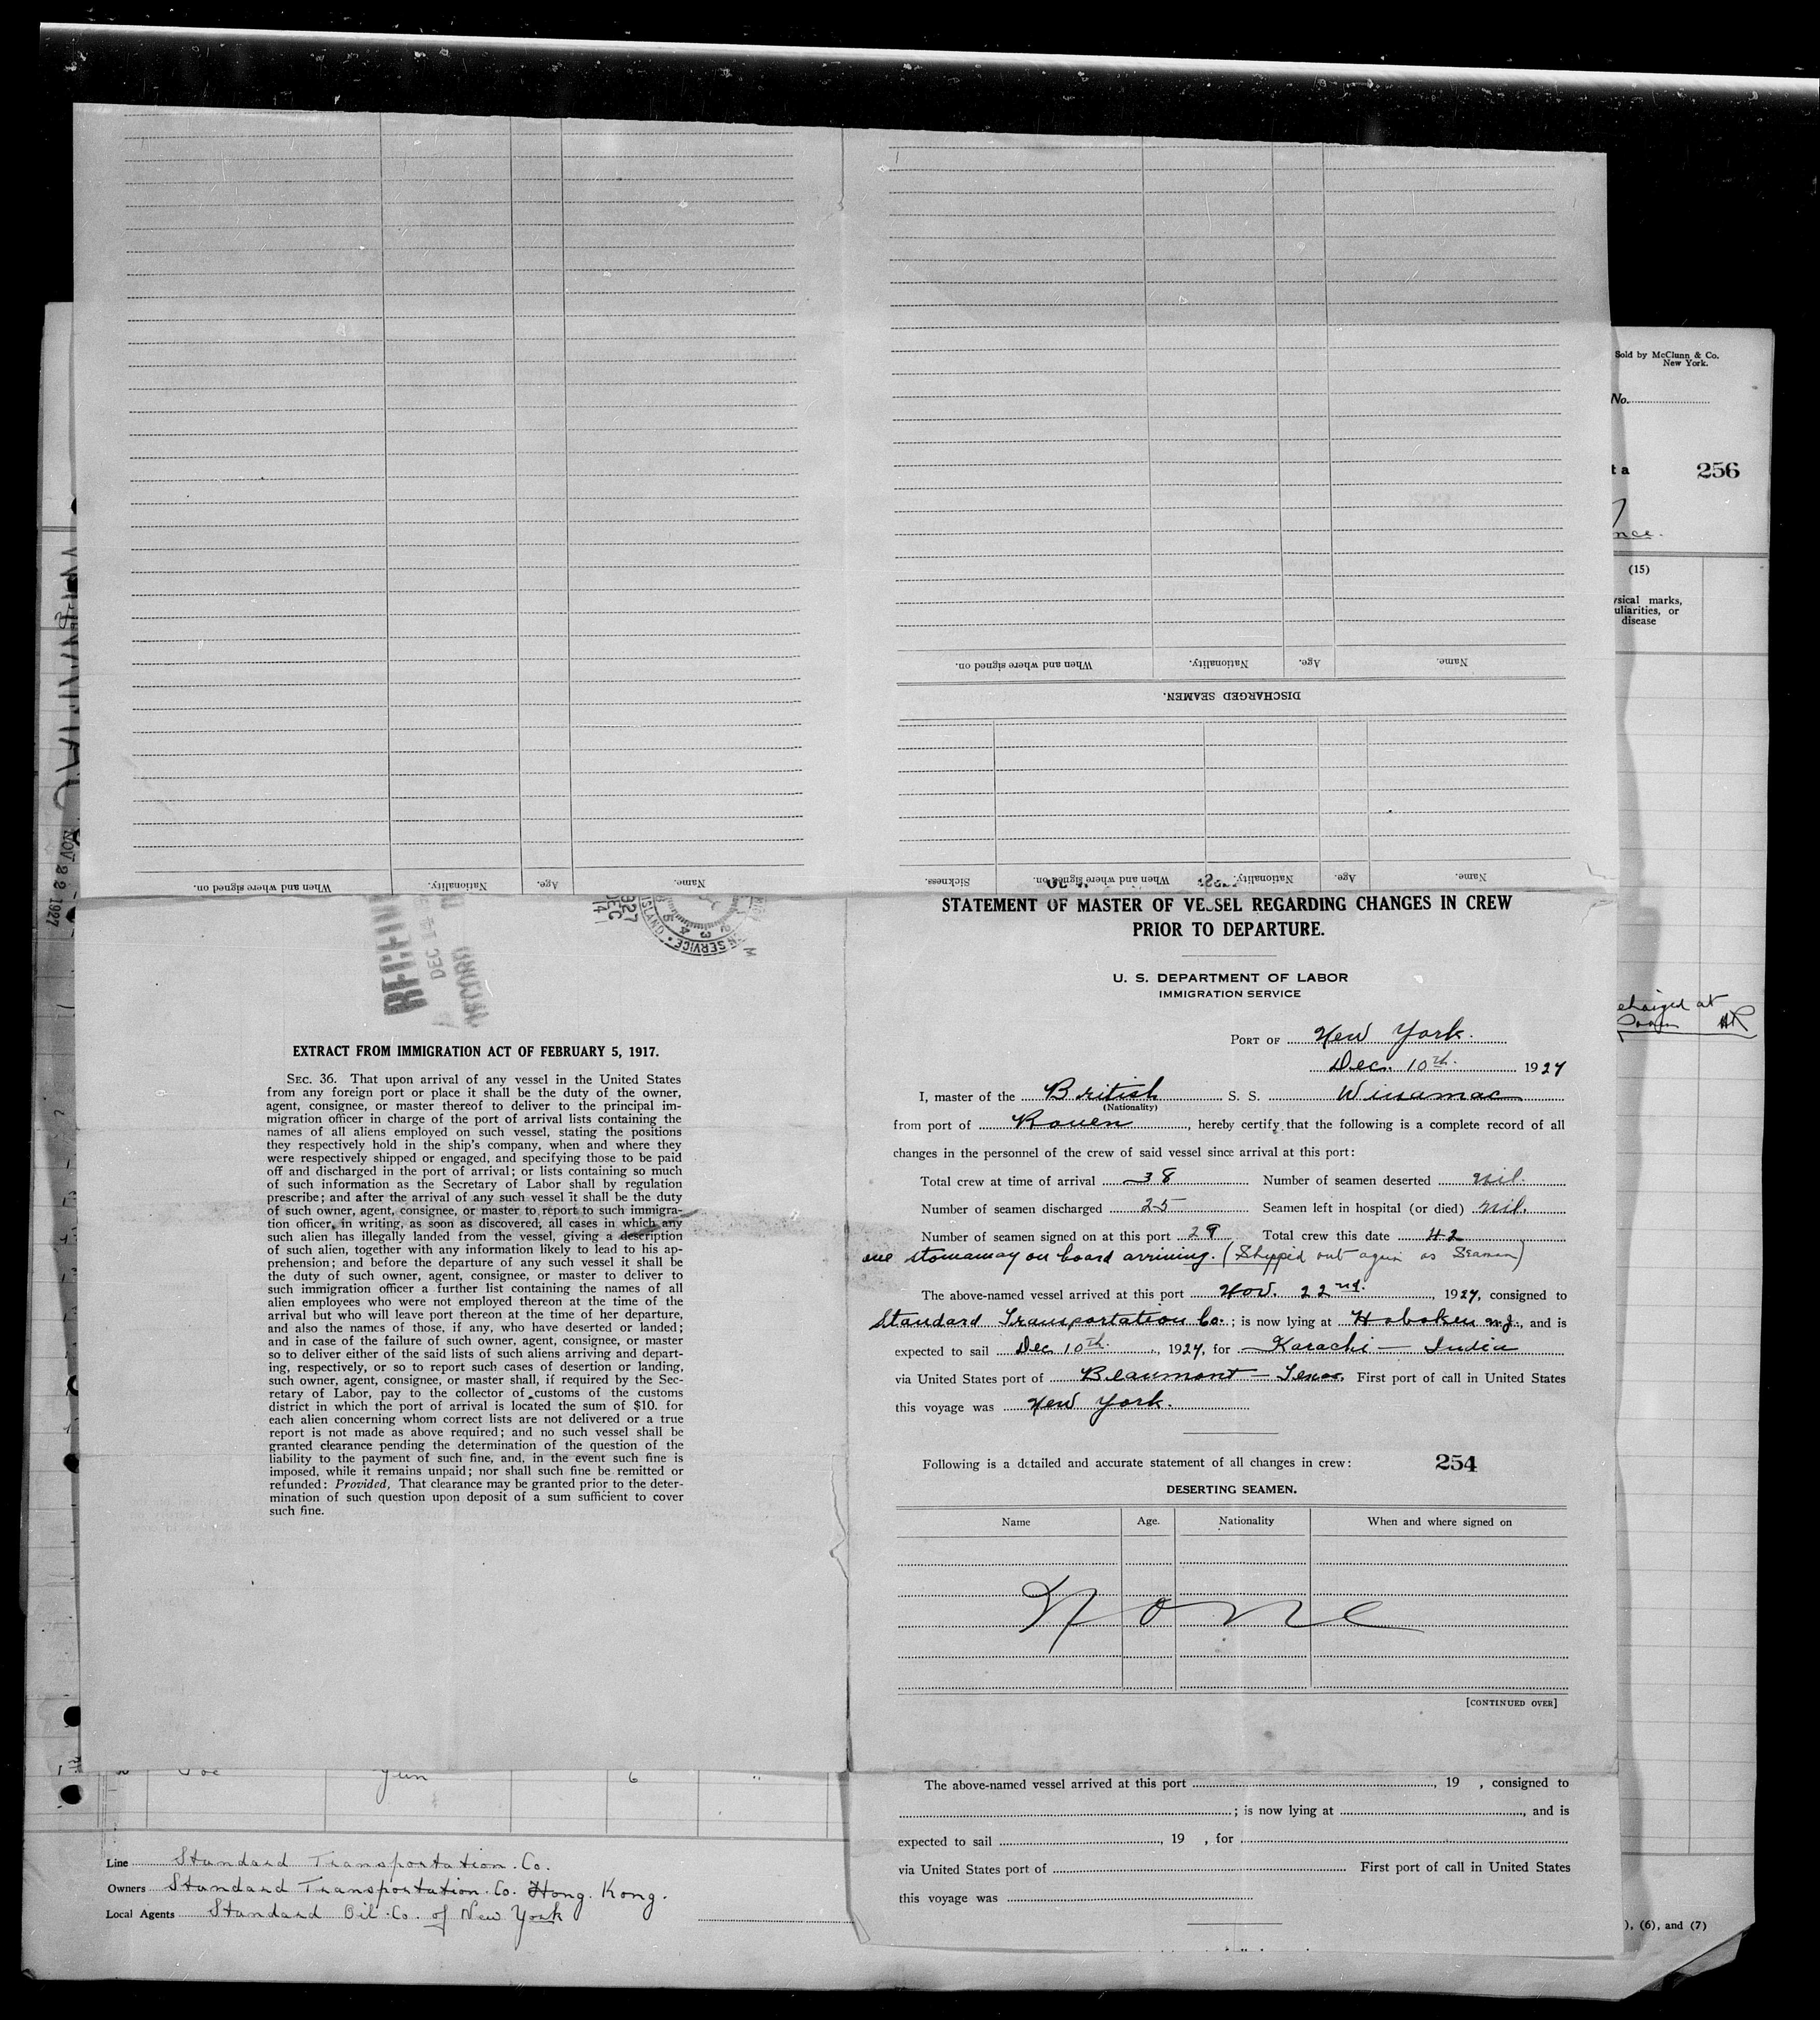 Sold by McClunn & Co.
New York.
No.
ta 256
nce.
(15)
ysical marks,
uliarities, or
disease
When and where signed on.
Nationality.
Age.
Name.
DISCHARGED SEAMEN.
When and where signed on.
Nationality.
Age.
Name.
Sickness.
When and where signed on.
Nationality.
Age.
Name.
NOV 22 1927
DEC 14
ISLAND
SERVICE
DEC 14
1927
EXTRACT FROM IMMIGRATION ACT OF FEBRUARY 5, 1917.
SEC. 36. That upon arrival of any vessel in the United States
from any foreign port or place it shall be the duty of the owner,
agent, consignee, or master thereof to deliver to the principal im-
migration officer in charge of the port of arrival lists containing the
names of all aliens employed on such vessel, stating the positions
they respectively hold in the ship's company, when and where they
were respectively shipped or engaged, and specifying those to be paid
off and discharged in the port of arrival; or lists containing so much
of such information as the Secretary of Labor shall by regulation
prescribe; and after the arrival of any such vessel it shall be the duty
of such owner, agent, consignee, or master to report to such immigra-
tion officer, in writing, as soon as discovered, all cases in which any
such alien has illegally landed from the vessel, giving a description
of such alien, together with any information likely to lead to his ap-
prehension; and before the departure of any such vessel it shall be
the duty of such owner, agent, consignee, or master to deliver to
such immigration officer a further list containing the names of all
alien employees who were not employed thereon at the time of the
arrival but who will leave port thereon at the time of her departure,
and also the names of those, if any, who have deserted or landed;
and in case of the failure of such owner, agent, consignee, or master
so to deliver either of the said lists of such aliens arriving and depart-
ing, respectively, or so to report such cases of desertion or landing,
such owner, agent, consignee, or master shall, if required by the Sec-
retary of Labor, pay to the collector of customs of the customs
district in which the port of arrival is located the sum of $10. for
each alien concerning whom correct lists are not delivered or a true
report is not made as above required; and no such vessel shall be
granted clearance pending the determination of the question of the
liability to the payment of such fine, and, in the event such fine is
imposed, while it remains unpaid; nor shall such fine be remitted or
refunded: Provided, That clearance may be granted prior to the deter-
mination of such question upon deposit of a sum sufficient to cover
such fine.
STATEMENT OF MASTER OF VESSEL REGARDING CHANGES IN CREW
PRIOR TO DEPARTURE.
U. S. DEPARTMENT OF LABOR
IMMIGRATION SERVICE
PORT OF New York.
Dec. 10th. 1927
I, master of the British S. S. Winamac
(Nationality)
from port of Rouen, hereby certify that the following is a complete record of all
changes in the personnel of the crew of said vessel since arrival at this port:
Total crew at time of arrival 38 Number of seamen deserted nil.
Number of seamen discharged 25 Seamen left in hospital (or died) nil.
Number of seamen signed on at this port 29 Total crew this date 42
one stowaway on board arriving. (Shipped out again as Seaman)
The above-named vessel arrived at this port Nov. 22nd. , 1927, consigned to
Standard Transportation Co. ; is now lying at Hoboken N.J., and is
expected to sail Dec 10th. , 1927, for Karachi — India
via United States port of Beaumont — Texas. First port of call in United States
this voyage was New York.
Following is a detailed and accurate statement of all changes in crew: 254
DESERTING SEAMEN.
Name Age. Nationality When and where signed on
None
[CONTINUED OVER]
The above-named vessel arrived at this port , 19 , consigned to
; is now lying at , and is
expected to sail , 19 , for
via United States port of First port of call in United States
this voyage was
Yun 6 "
Line Standard Transportation. Co.
Owners Standard Transportation. Co. Hong. Kong.
Local Agents Standard Oil. Co. of New York
), (6), and (7)